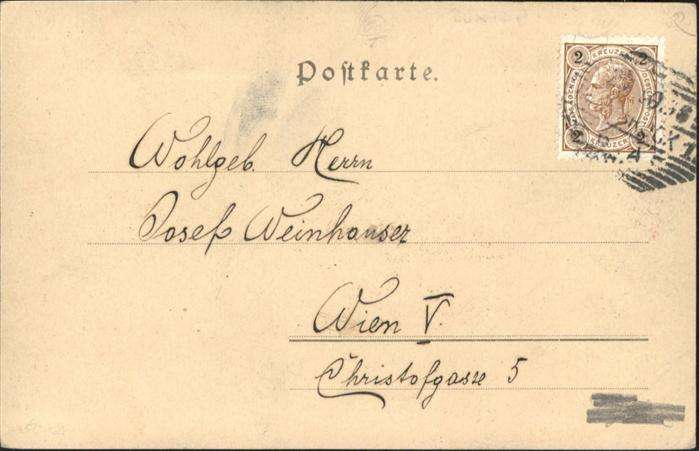 Postkarte.
2 KREUZER 2
2 KREUZER 2
Wohlgeb. Herrn
Josef Weinhauser
Wien V.
Christofgasse 5